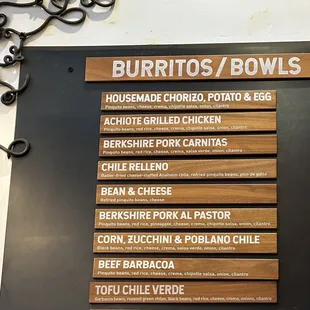 BURRITOS/BOWLS
HOUSEMADE CHORIZO, POTATO & EGG
Pinquito beans, cheese, crema, chipotle salsa, onion, cilantro
ACHIOTE GRILLED CHICKEN
Pinquito beans, red rice, cheese, crema, chipotle salsa, onion, cilantro
BERKSHIRE PORK CARNITAS
Pinquito beans, red rice, cheese, crema, salsa verde, onion, cilantro
CHILE RELLENO
Batter-fried cheese-stuffed Anaheim chile, refried pinquito beans, pico de gallo
BEAN & CHEESE
Refried pinquito beans, cheese
BERKSHIRE PORK AL PASTOR
Pinquito beans, red rice, pineapple, cheese, crema, chipotle salsa, onion, cilantro
CORN, ZUCCHINI & POBLANO CHILE
Black beans, red rice, cheese, crema, salsa verde, onion, cilantro
BEEF BARBACOA
Pinquito beans, red rice, cheese, crema, chipotle salsa, onion, cilantro
TOFU CHILE VERDE
Garbanzo beans, roasted green chiles, black beans, red rice, cheese, crema, onions, cilantro